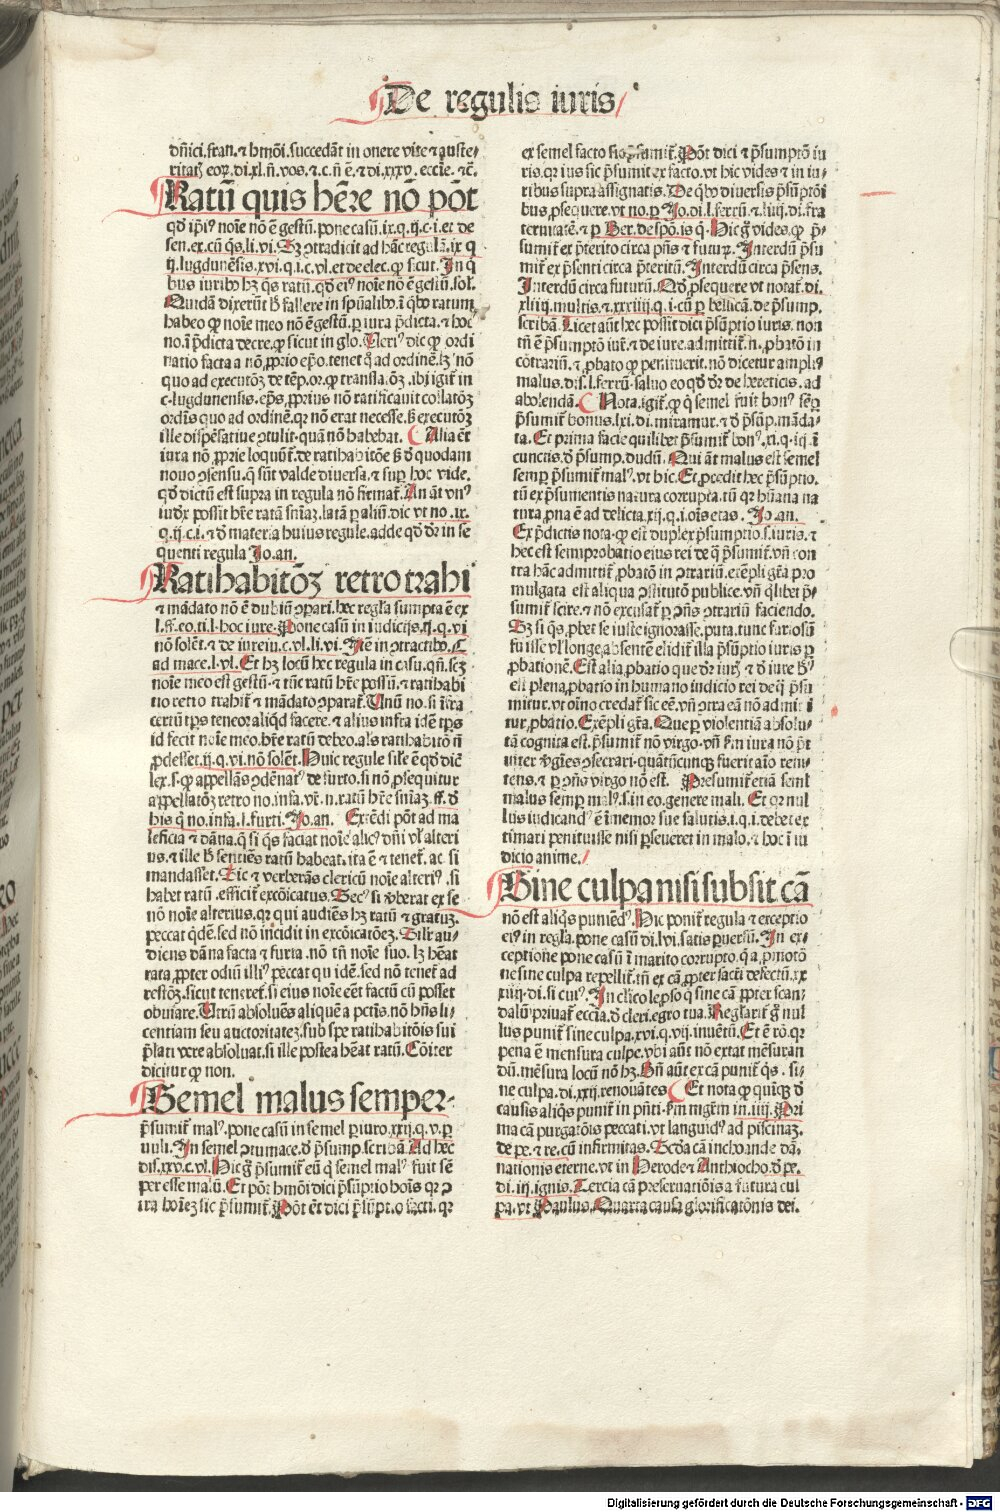 De regulis iuris
dñici.fran.⁊ hmõi.succedãt in onere vite ⁊ auste⸗
ritatꝭ eoꝝ.di.xl.ñ vos.⁊.c.ñ ẽ.⁊ di.xxxv.eccie.⁊c̃.
Ratũ quis hẽre nõ põt
qď ip̃iꝰ noĩe nõ ẽ gestũ.pone casũ.ix.q.ij.c.i.et de
sen.ex.cũ q̃s.li.vi. Sꝫ ɔtradicit ad hãc regulã.ix q
ij.lugdunẽsis.xvi.q.i.c.vl.et de elec.ꝙ sicut. In q̃
busiuribꝰ hꝫ q̃s ratũ.qď eiꝰ noĩe nõ ẽ gestũ.sol.
Quidã dixerũt ħ fallere in spũalibꝰ.ĩ q̃bꝰ ratum
habeo ꝙ noĩe meo nõ ẽ gestũ.ꝑ iura p̃dicta.⁊ hoc
no.ĩ p̃dicta decre.ꝙ sicut in glo. Veriꝰ dic ꝙ ordi
natio facta a nõ ꝓprio ep̃o.tenet q̃ ad ordinẽ.lꝫ nõ
quo ad executõꝫ de tẽp.or.ꝙ transla.õꝫ.ibi igit̃ in
c.lugdunensis.ep̃s ꝓprius nõ ratificauit collatõꝫ
ordĩs quo ad ordinẽ.qꝛ nõ erat necesse.sꝫ executõꝫ
ille dispẽsatiue ɔtulit.quã nõ habebat. Alia ẽt
iura nõ ꝓprie loquũt̃.de ratihabitõe sꝫ ď quodam
nouo ɔsensu.q̃ sũt valde diuersa.⁊ suꝑ hoc vide.
qď dictũ est supra in regula nõ firmat̃. An ãt vnꝰ
iudex possit hẽre ratã sñiaꝫ.latã ꝑ aliũ.dic vt no.ix.
q.ij.c.i.⁊ ď materia huius regule.adde qď ďr in se
quenti regula Jo.an.
Ratihabitõꝫ retrotrahi
⁊ mãdato nõ ẽ dubiũ ɔpari.hec regla sumpta ẽ ex
l.ff.eo.ti.l.hoc iure. Pone casũ in iudicijs.ij.q.vi
nõ solẽt.⁊ de iureiu.c.vl.li.vi. Itẽ in ɔtractibꝰ.C
ad mace.l.vl. Et hꝫ locũ hec regula in casu.qñ.scꝫ
noĩe meo est gestũ.⁊ tũc ratũ hẽre possũ.⁊ ratihabi
tio retro trahit̃ ⁊ mãdato ɔparat̃. Unũ no.si ĩfra
certũ tp̃s teneor aliqď facere.⁊ alius infra idẽ tp̃s
id fecit noĩe meo.hẽre ratũ debeo.als ratihabitõ ñ
ꝓdesset.ij.q.vi.nõ solẽt. Huic regule sile ẽ qď dic̃
lex.s.ꝙ appellãs ɔdẽnatꝰ de furto.si nõ ꝓsequitur
appellatõꝫ retro no.infa.vt̃.n.ratũ hẽre sñiaꝫ.ff.ď
his q̃ no.infa.l.furti. Jo.an. Extẽdi põt ad ma
leficia ⁊ dãna.q̃ si q̃s faciat noĩe alicꝰ dñi vl̃ alteri
us.⁊ ille ħ sentiẽs ratũ habeat.ita ẽ ⁊ tenet̃.ac si
mandasset. Sic ⁊ verberãs clericũ noĩe alteriꝰ.si
habet ratũ.efficit̃ excõicatus. Secꝰ si v̓berat ex se
nõ noĩe alterius.qꝛ qui audiẽs hꝫ ratũ ⁊ gratuꝫ.
peccat q̃dẽ.sed nõ incidit in excõicatõeꝫ. Silr̃ au⸗
diens dãna facta ⁊ furta.nõ tñ noĩe suo.lꝫ hẽat
rata.ꝓpter odiũ illiꝰ peccat qui dẽ.sed nõ tenet̃ ad
restõꝫ.sicut teneret̃.si eius noĩe eẽnt factũ cũ posset
obuiare. Utrũ absoluẽs aliquẽ a pctĩs.nõ hñs li⸗
centiam seu auctoritateꝫ.sub spe ratihabitõis sui
p̃lati vere absoluat.si ille postea hẽat ratũ. Cõiter
dicitur ꝙ non.
Semel malus semper⸗
p̃sumit̃ malꝰ.pone casũ in semel ꝑiuro.xxij.q.v.ꝑ
uuli. In semel ɔtumace.ď p̃sump.scribã. Ad hec
dis.xxv.c.vl. Hic g̃ p̃sumit̃ eũ q̃ semel malꝰ fuit sẽ
per esse malũ. Et põt hmõi dici p̃sũptio hoĩs qꝛ ɔ
tra hoĩeꝫ sic p̃sumit̃. Põt ẽt dici p̃sũpt.o facti.qꝛ
ex semel facto sic p̃sumit̃. Põt dici ⁊ p̃sumptõ iu
ris.qꝛ ius sic p̃sumit ex facto.vt hic vides ⁊ in iu⸗
ribus supra assignatis. De q̃bꝰ diuersis p̃sũptõi
bus ꝓsequere.vt no.ꝑ Jo.di.l.ferrũ.⁊ liiij.di.fra
ternitatẽ.⁊ ꝑ Ber.de spõ.is q̃. Hic g̃ vides.ꝙ p̃⸗
sumit̃ ex p̃terito circa p̃ñs ⁊ futurꝝ. Interdũ p̃su
mit̃ ex p̃senti circa p̃teritũ. Interdũ circa p̃sens.
Interdũ circa futurũ. Qď ꝓsequere vt notat̃.di.
xliiij.multis.⁊.xxxiiij.q.i.cũ ꝑ bellicã.de p̃sump.
scribã. Licet aũt hec possit dici p̃sũptio iuris.non
tñ ẽ p̃sumptõ iur̃.⁊ de iure.admittit̃.n.ꝓbatõ in
cõtrariũ.⁊ ꝓbato ꝙ penituerit.nõ dicetur ampliꝰ
malus.dis.l.ferrũ.saluo eo qď ďr de hereticis.ad
abolendã. Nota.igit̃.ꝙ q̃ semel fuit bonꝰ semꝑ
p̃sumit̃ bonus.lxi.di.miramur.⁊ ď p̃sũp.mãda⸗
ta. Et prima facie quilibet p̃sumit̃ bonꝰ.xi.q.iij.ĩ
cunctis.ď p̃sump.dudũ. Qui ãt malus est semel
semꝑ p̃sumit̃ malꝰ.vt hic. Et ꝓcedit hec p̃sũptio.
tũ ex p̃sumentis natura corrupta.tũ qꝛ hũana na
tura prona ẽ ad delicta.xij.q.i.oĩs etas. Jo.an.
Ex p̃dictis nota ꝙ est duplex p̃sumptio.s.iuris.⁊
hec est semiprobatio eius rei de q̃ p̃sumit̃.vñ con
tra hãc admittit̃ ꝓbatõ in ɔtrariũ.exẽpli gr̃a pro
mulgata est aliqua ɔstitutõ publice.vñ q̃libet p̃⸗
sumit̃ scire.⁊ nõ excusat̃ ꝑ ɔñs ɔtrariũ faciendo.
Sꝫ si q̃s ꝓbet se iuste ignorasse.puta.tunc furiosũ
fuisse vl̃ longe absentẽ elidit̃ illa p̃sũptio iuris ꝑ
ꝓbationẽ. Est alia ꝓbatio que ďr iurꝭ ⁊ ď iure ⁊ ħ
est plena ꝓbatio in humano iudicio rei de q̃ p̃su
mitur.vt oĩno credat̃ sic eẽ.vñ ɔtra eã nõ admitti
tur ꝓbatio. Exẽpli gr̃a. Que ꝑ violentiã absolu⸗
tã cognita est.p̃sumit̃ nõ virgo.vñ ẽm iura nõ p̃t
inter v̓gĩes ɔsecrari.quãtũcunqꝫ fuerit aĩo reni⸗
tens.⁊ ꝑ ɔñs virgo nõ est. Presumit̃ etiã seml̃
malus semꝑ malꝰ.s.in eo.genere mali. Et qꝛ nul
lus iudicandꝰ ẽ ĩmemor sue salutis.i.q.i.debet ex
timari penituisse nisi ꝑseueret in malo.⁊ hoc ĩ iu
dicio anime.
Sine culpa nisi subsit cã
nõ est aliq̃s puniẽdꝰ. Hic ponit̃ regula ⁊ exceptio
eiꝰ in regla.pone casũ di.lvi.satis ꝑuersũ. In ex⸗
ceptione pone casũ ĩ marito corrupto.q̃ a ꝓmotõ
ne sine culpa repellit̃.tñ ex cã.ꝓpter sacr̃i defectũ.xx
xiiij.di.si cuiꝰ. In cľico leproso q̃ sine cã ꝓpter scan⸗
dalũ priuat̃ eccia.ď cleri.egrotua. Reglarit̃ g̃ nul
lus punit̃ sine culpa.xvi.q.vij.inuẽtũ. Et ẽ rõ.qꝛ
pena ẽ mensura culpe.vbi aũt nõ extat mẽsuran
dũ.mẽsura locũ nõ hꝫ. Bñ aũt ex cã punit̃ q̃s.si⸗
ne culpa.di.xxij.renouãtes Et nota ꝙ quĩqꝫ ď
causis aliq̃s punit̃ in p̃nti.ẽm mgr̃m in.iiij. Pri
ma cã purgatõis peccati.vt languidꝰ ad piscinaꝫ.
de pe.⁊ re.cũ infirmitas. Scďa cã inchoande dã⸗
nationis eterne.vt in Herode ⁊ Anthiocho.ď pe.
di.iij.ignis. Tercia cã preseruatiõis a futura cul
pa.vt Paulus. Quarta causa glorificatõnis dei.
Digitalisierung gefördert durch die Deutsche Forschungsgemeinschaft - DFG